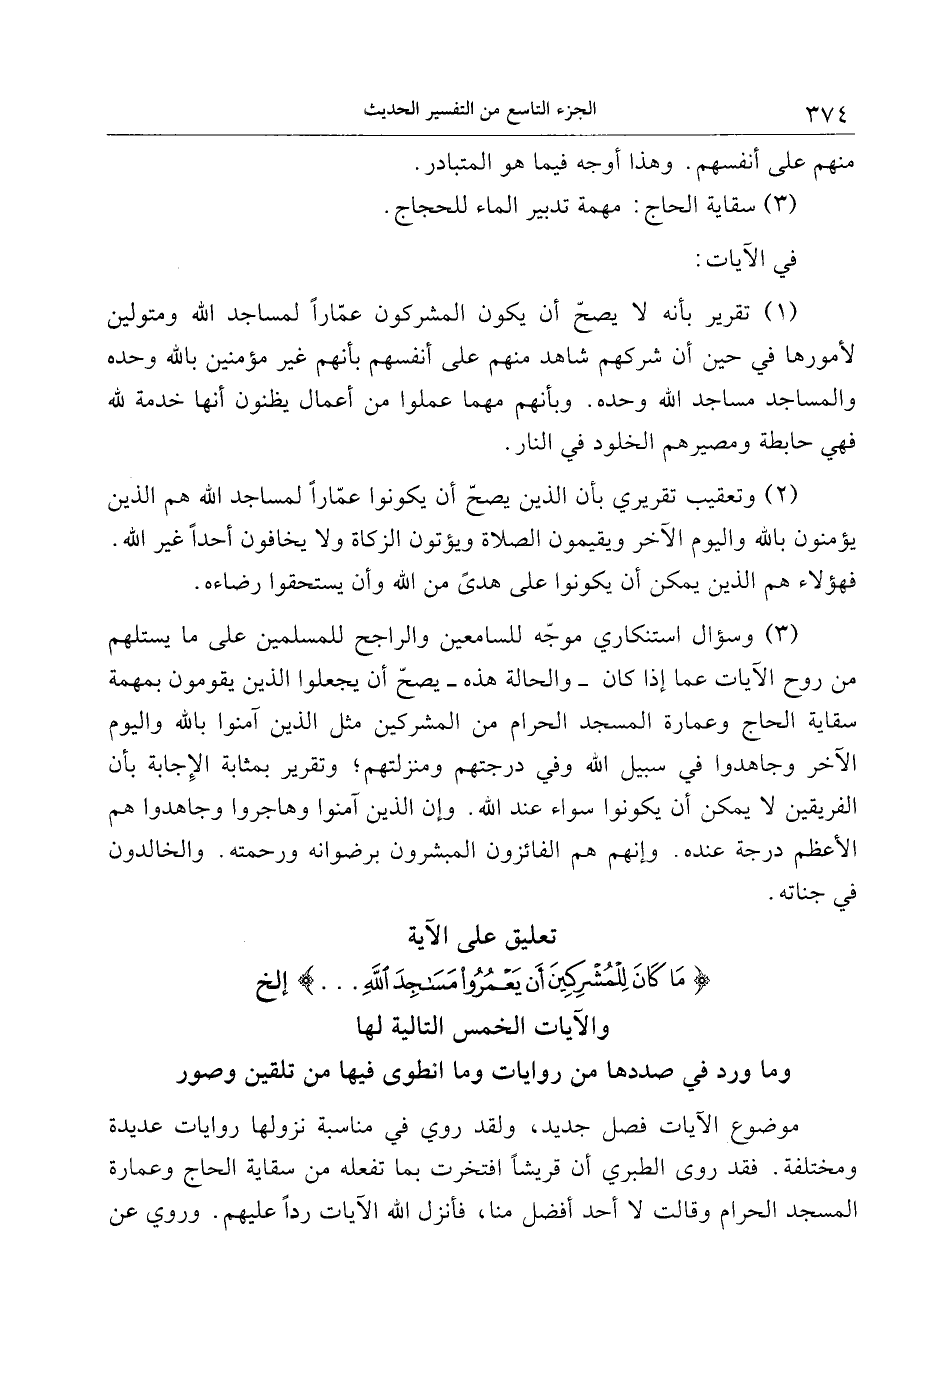 ٣٧٤ الجزء التاسع من التفسير الحديث
منهم على أنفسهم. وهذا أوجه فيما هو المتبادر.
(٣) سقاية الحاج: مهمة تدبير الماء للحجاج.
في الآيات:
(١) تقرير بأنه لا يصحّ أن يكون المشركون عمّاراً لمساجد الله ومتولين
لأمورها في حين أن شركهم شاهد منهم على أنفسهم بأنهم غير مؤمنين بالله وحده
والمساجد مساجد الله وحده. وبأنهم مهما عملوا من أعمال يظنون أنها خدمة لله
فهي حابطة ومصيرهم الخلود في النار.
(٢) وتعقيب تقريري بأن الذين يصحّ أن يكونوا عمّاراً لمساجد الله هم الذين
يؤمنون بالله واليوم الآخر ويقيمون الصلاة ويؤتون الزكاة ولا يخافون أحداً غير الله.
فهؤلاء هم الذين يمكن أن يكونوا على هدىً من الله وأن يستحقوا رضاءه.
(٣) وسؤال استنكاري موجّه للسامعين والراجح للمسلمين على ما يستلهم
من روح الآيات عما إذا كان ـ والحالة هذه ـ يصحّ أن يجعلوا الذين يقومون بمهمة
سقاية الحاج وعمارة المسجد الحرام من المشركين مثل الذين آمنوا بالله واليوم
الآخر وجاهدوا في سبيل الله وفي درجتهم ومنزلتهم؛ وتقرير بمثابة الإجابة بأن
الفريقين لا يمكن أن يكونوا سواء عند الله. وإن الذين آمنوا وهاجروا وجاهدوا هم
الأعظم درجة عنده. وإنهم هم الفائزون المبشرون برضوانه ورحمته. والخالدون
في جناته.
تعليق على الآية
﴿ مَا كَانَ لِلْمُشْرِكِينَ أَن يَعْمُرُوا۟ مَسَـٰجِدَ ٱللَّهِ . . . ﴾ إلخ
والآيات الخمس التالية لها
وما ورد في صددها من روايات وما انطوى فيها من تلقين وصور
موضوع الآيات فصل جديد، ولقد روي في مناسبة نزولها روايات عديدة
ومختلفة. فقد روى الطبري أن قريشاً افتخرت بما تفعله من سقاية الحاج وعمارة
المسجد الحرام وقالت لا أحد أفضل منا، فأنزل الله الآيات رداً عليهم. وروي عن